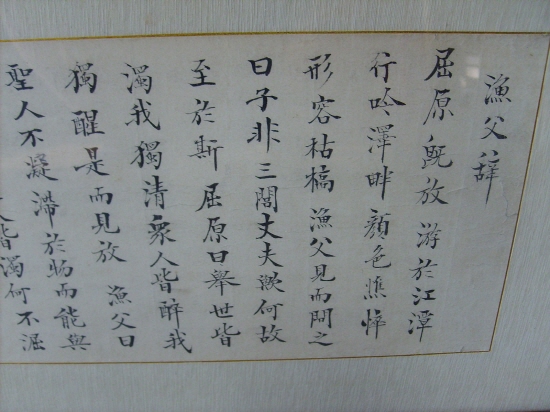 漁父辭
屈原旣放 游於江潭
行吟澤畔顏色憔悴
形容枯槁 漁父見而問之
曰子非三閭丈夫歟何故
至於斯 屈原曰舉世皆
濁我獨清衆人皆醉我
獨醒是而見放 漁父曰
聖人不凝滯於物而能與
人皆濁何不淈